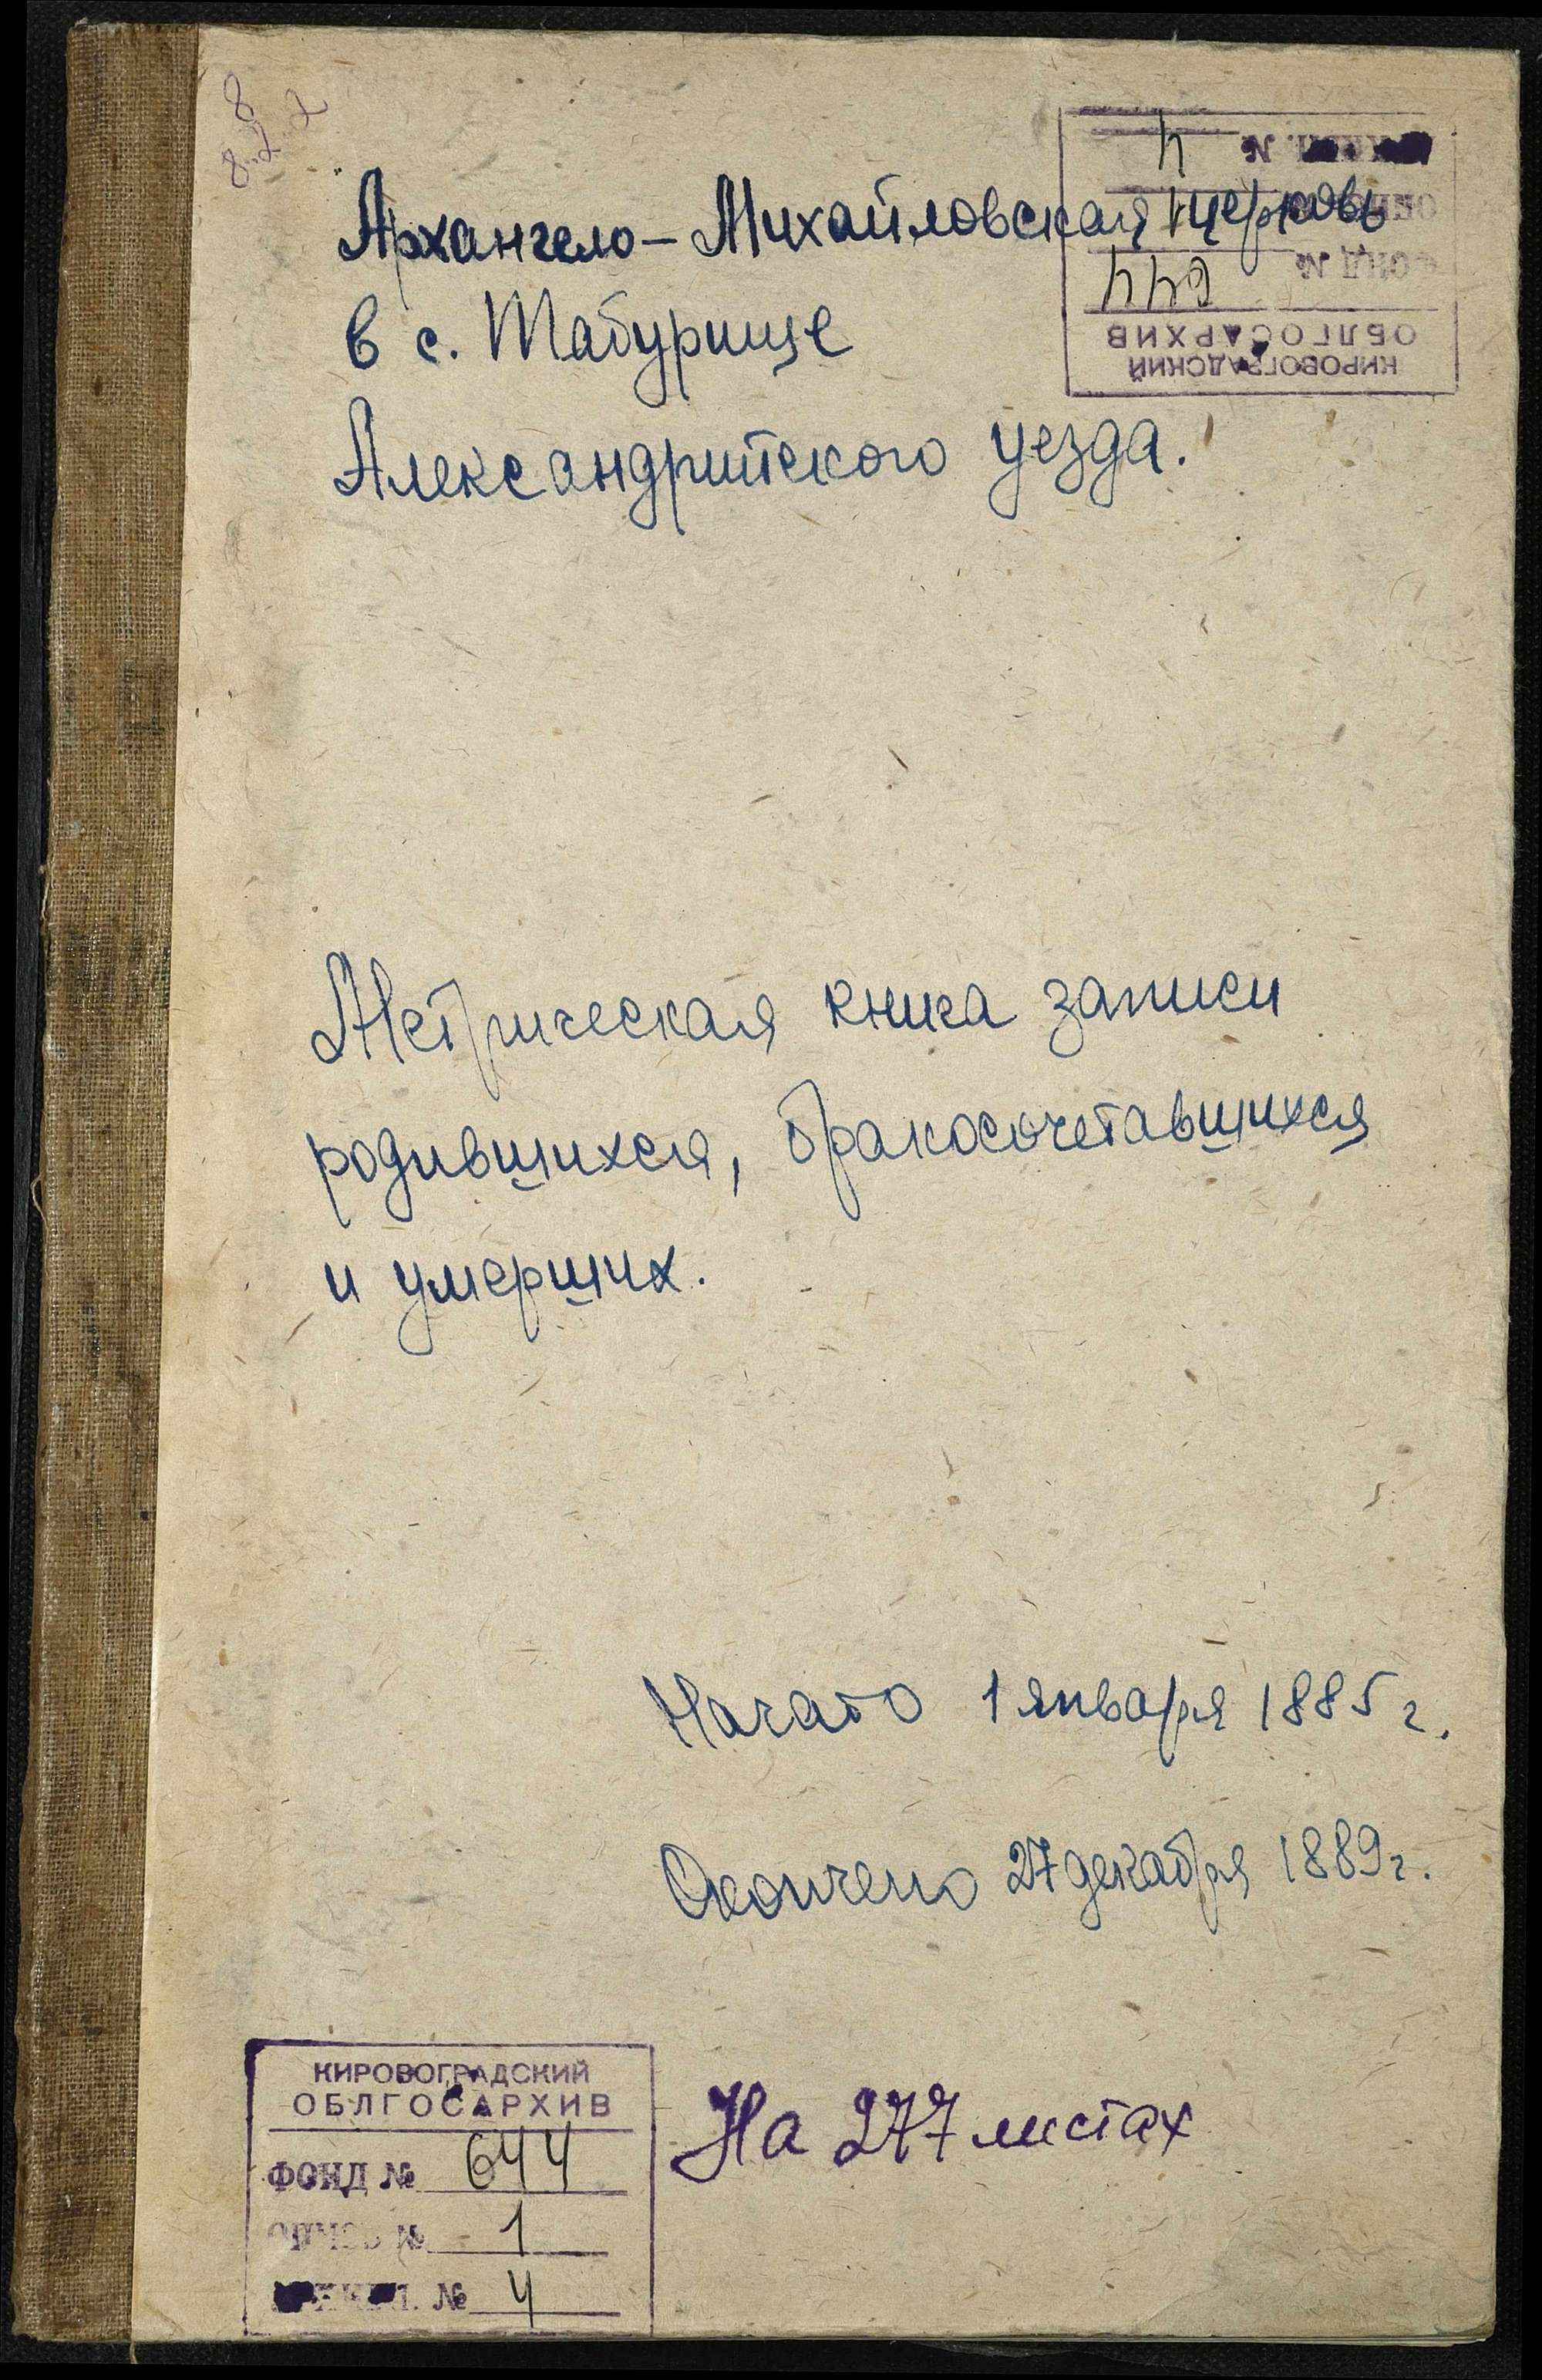 Архангело-Михайловская церковь
в с. Табурище
Александрийского уезда.
Метрическая книга записи
родившихся, бракосочетавшихся
и умерших.
Начато 1 января 1885 г.
Окончено 27 декабря 1889 г.
КИРОВОГРАДСКИЙ
ОБЛГОСАРХИВ
ФОНД № 644
ОПИСЬ № 1
№ 4
На 277 листах
КИРОВОГРАДСКИЙ
ОБЛГОСАРХИВ
ФОНД № 644
№ 4